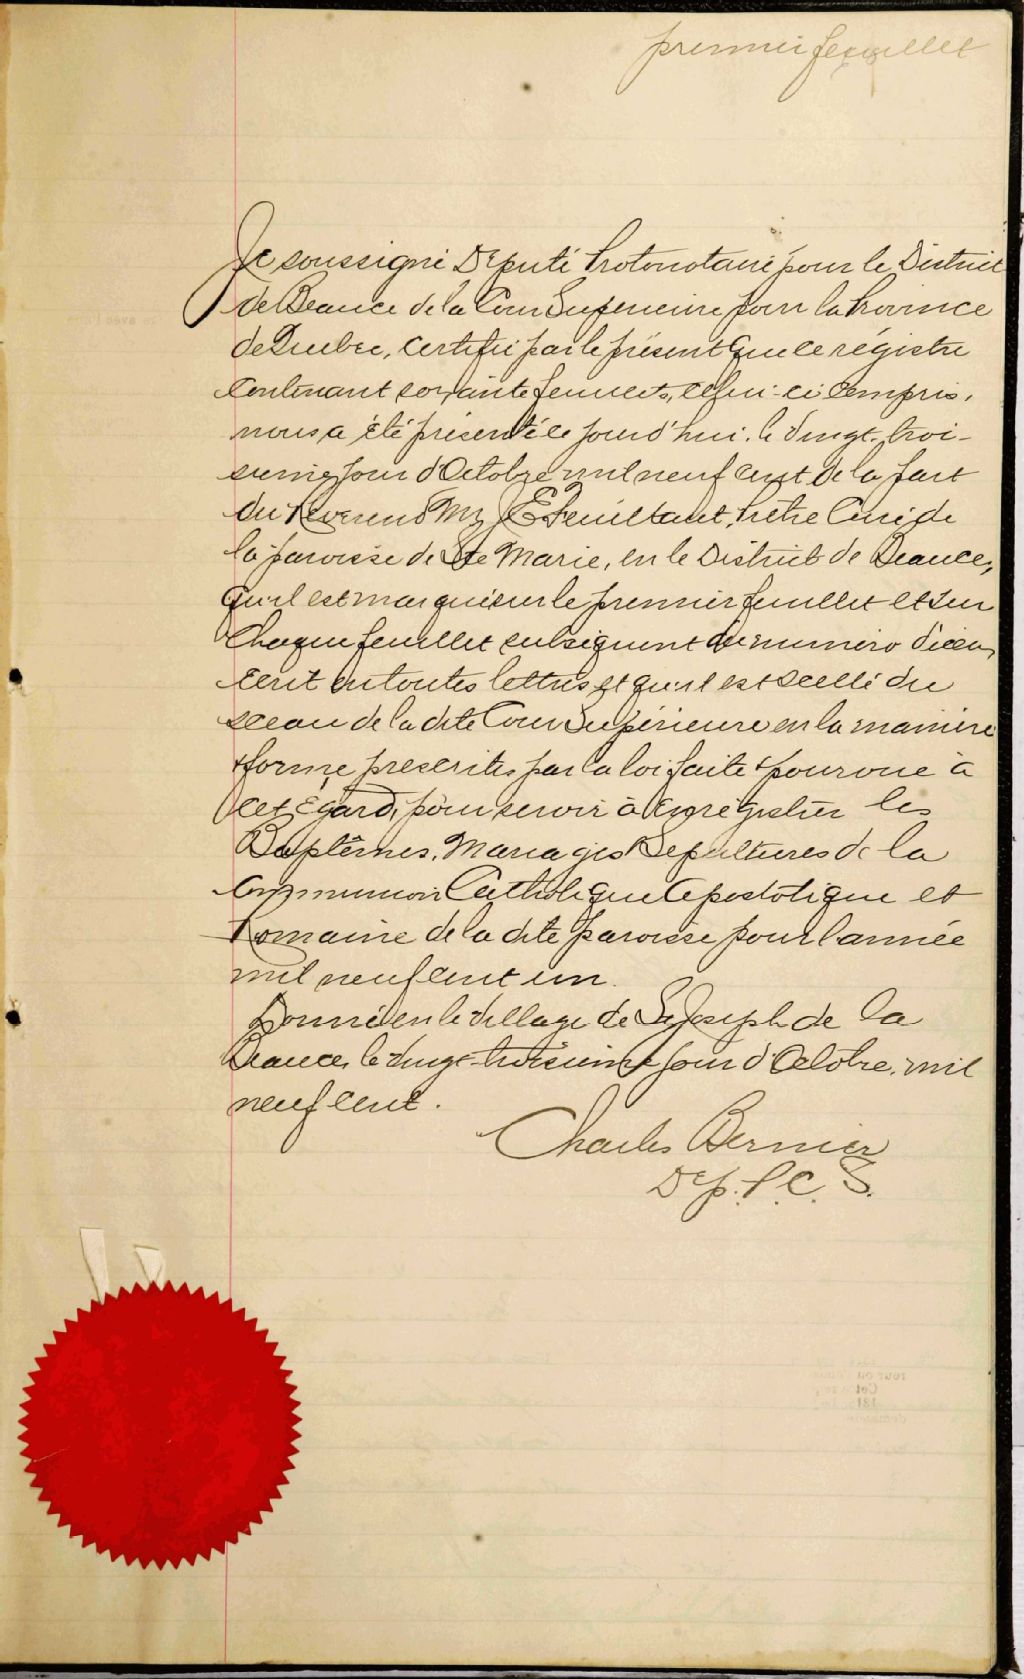 premier feuillet
Je soussigné Député Protonotaire pour le District
de Beauce de la Cour Superieure pour la Province
de Quebec, certifie par le présent que ce régistre
contenant soixante feuillets, celui-ci compris,
nous a été présenté ce jourd'hui, le vingt-troi-
sieme jour d'Octobre mil neuf cent de la part
du Reverend Mr J E Feuiltault, Prêtre Curé de
la paroisse de Ste Marie, en le District de Beauce,
qu'il est marqué sur le premier feuillet et sur
chaque feuillet subséquent du numéro d'iceux
écrit en toutes lettres et qu'il est scellé du
sceau de la dite Cour Supérieure en la maniere
& forme prescrites par la loi faite & pourvue à
cet égard, pour servir à enrégistrer les
Baptêmes, Mariages Sepultures de la
Communion Catholique Apostolique et
Romaine de la dite paroisse pour l'année
mil neuf cent un.
Donné en le village de St Joseph de la
Beauce, le vingt-troisieme jour d'Octobre, mil
neuf cent.
Charles Bernier
Dép. P. C. S.